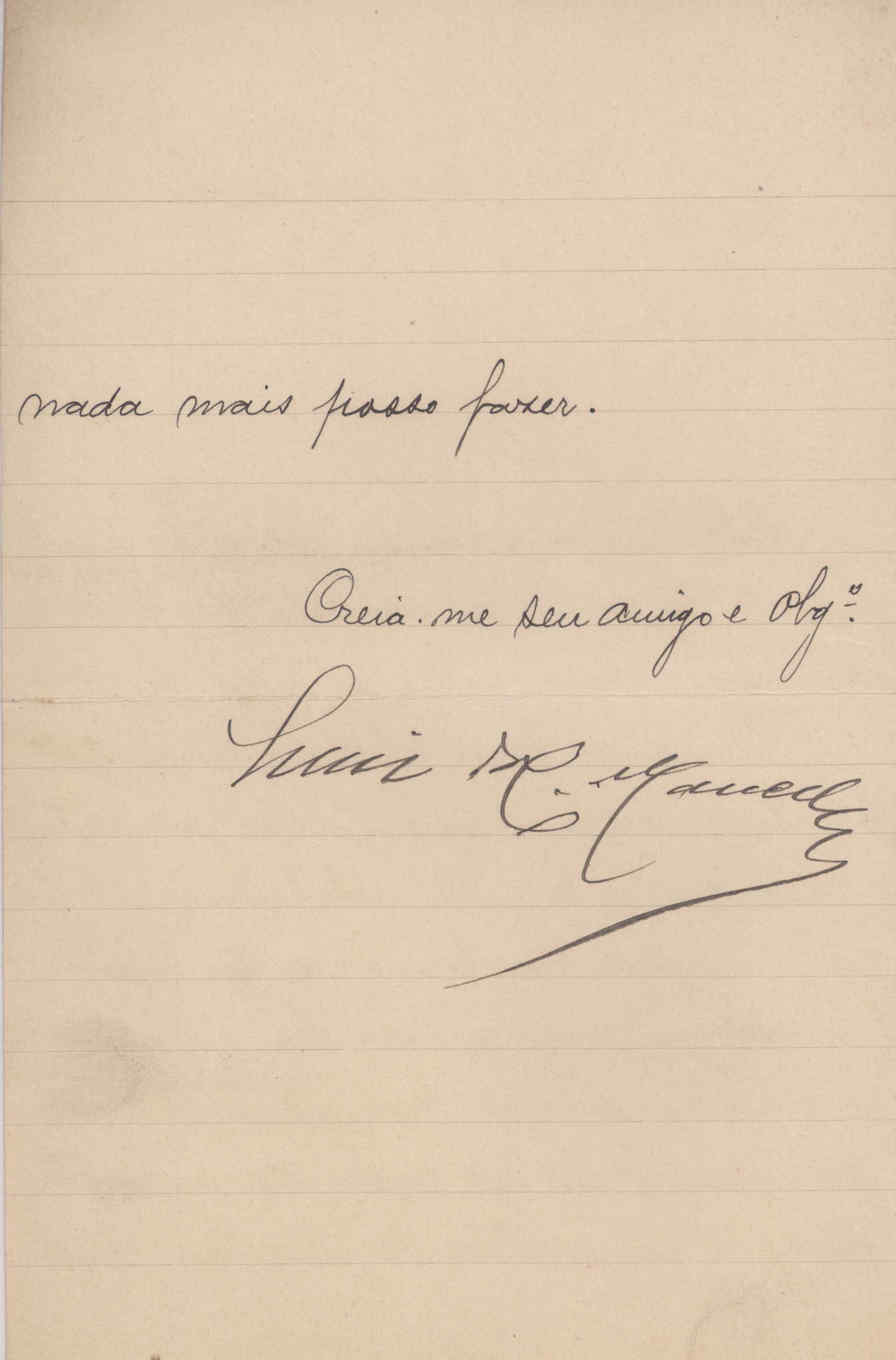 nada mais posso fazer.
Creia-me seu amigo e Obgº.
Luiz